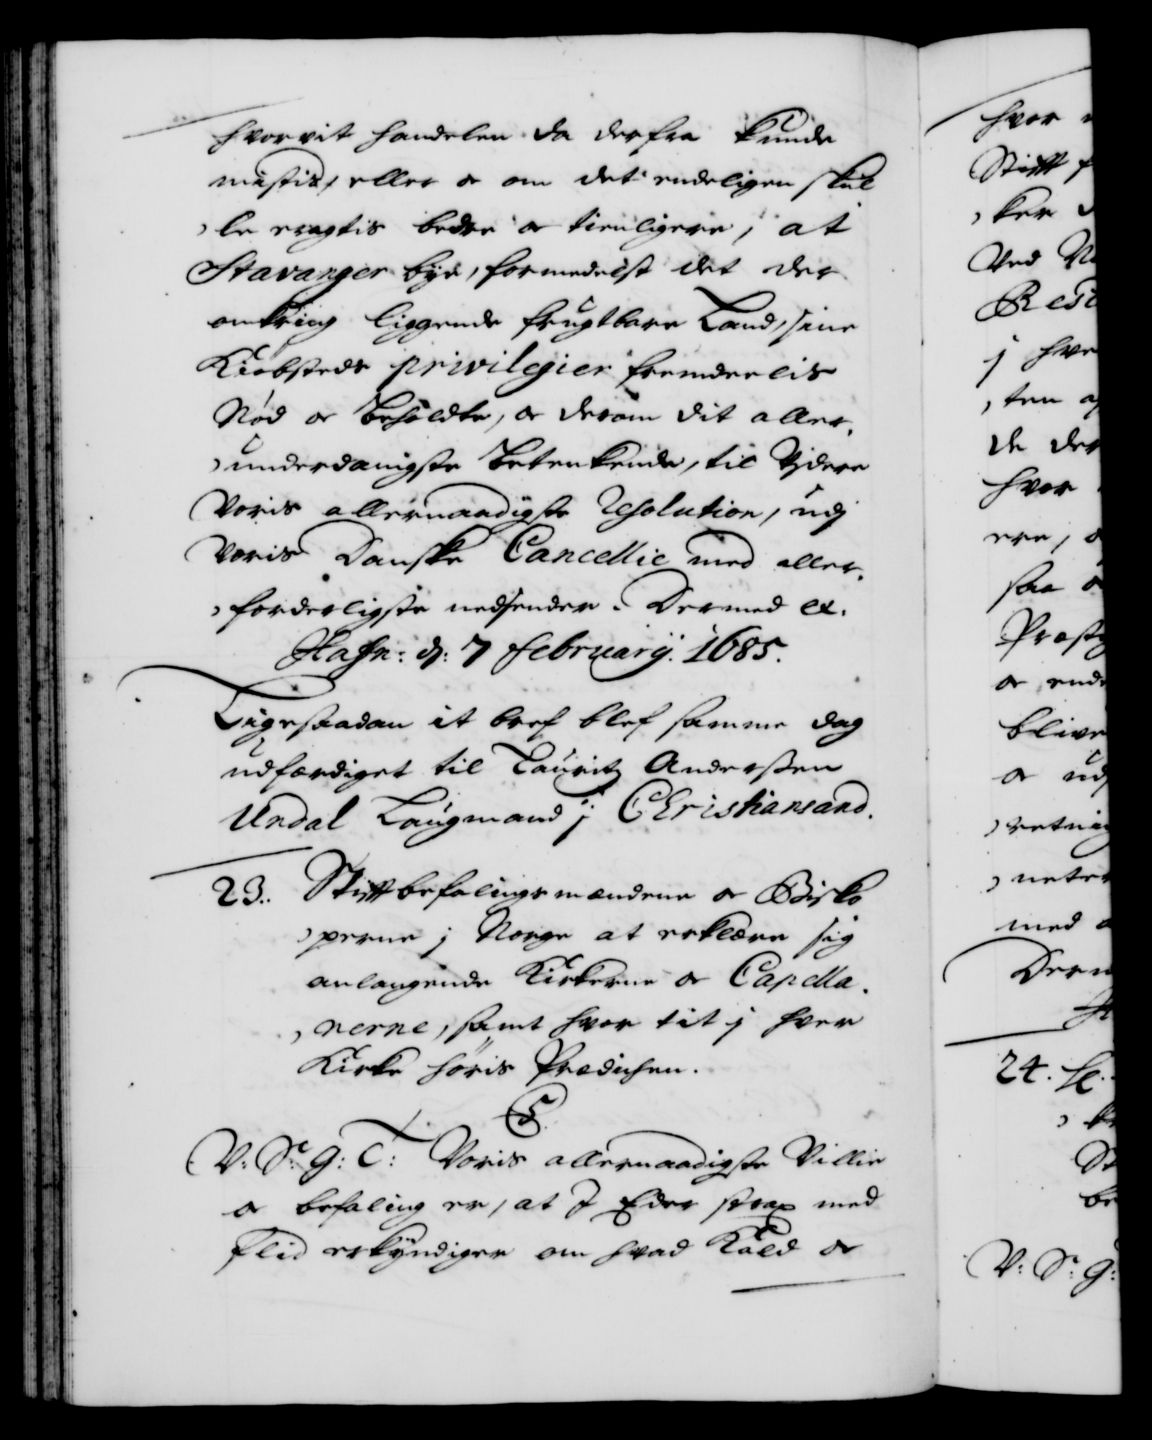 hvorvit handelen da derfra kunde
mistis, eller oc om det endeligen skul
, le eragtis bedre oc tienligere, at
Stavanger bye, formedelst det der
omkring liggende frugtbare Land, sine
Kiøbsteds privilegier fremdeelis
Nød oc beholdte, oc derom dit aller,
, underdanigste betenkende, til Videre
Voris allernaadigste Resolution, udj
Voris Danske Cancellie med aller,
, forderligste nedsender. Dermed etc.
Hafn: d: 7 february. 1685.
Ligesaadan it bref blef samme dag
udfærdiget til Lauritz Anderssen
Undal Laugmand j Christiansand.
23. Stiftbefalingsmændene oc Bisko
, perne j Norge at erklære sig
anlangende Kirkerne oc Capella,
, nerne, samt hvor tit j hver
Kirke høris Prædichen.
C5.
V: S: G: T: Voris allernaadigste Villie
oc befaling er, at I Eder strax med
flid erkyndiger om hvad Kald oc
hvor
Stift
, ker
Ved
j hve
, ten
de der
hvor
ere,
saa
oc ende
blive
oc udj
, retnin
med
Derm
24.
V: S: G: